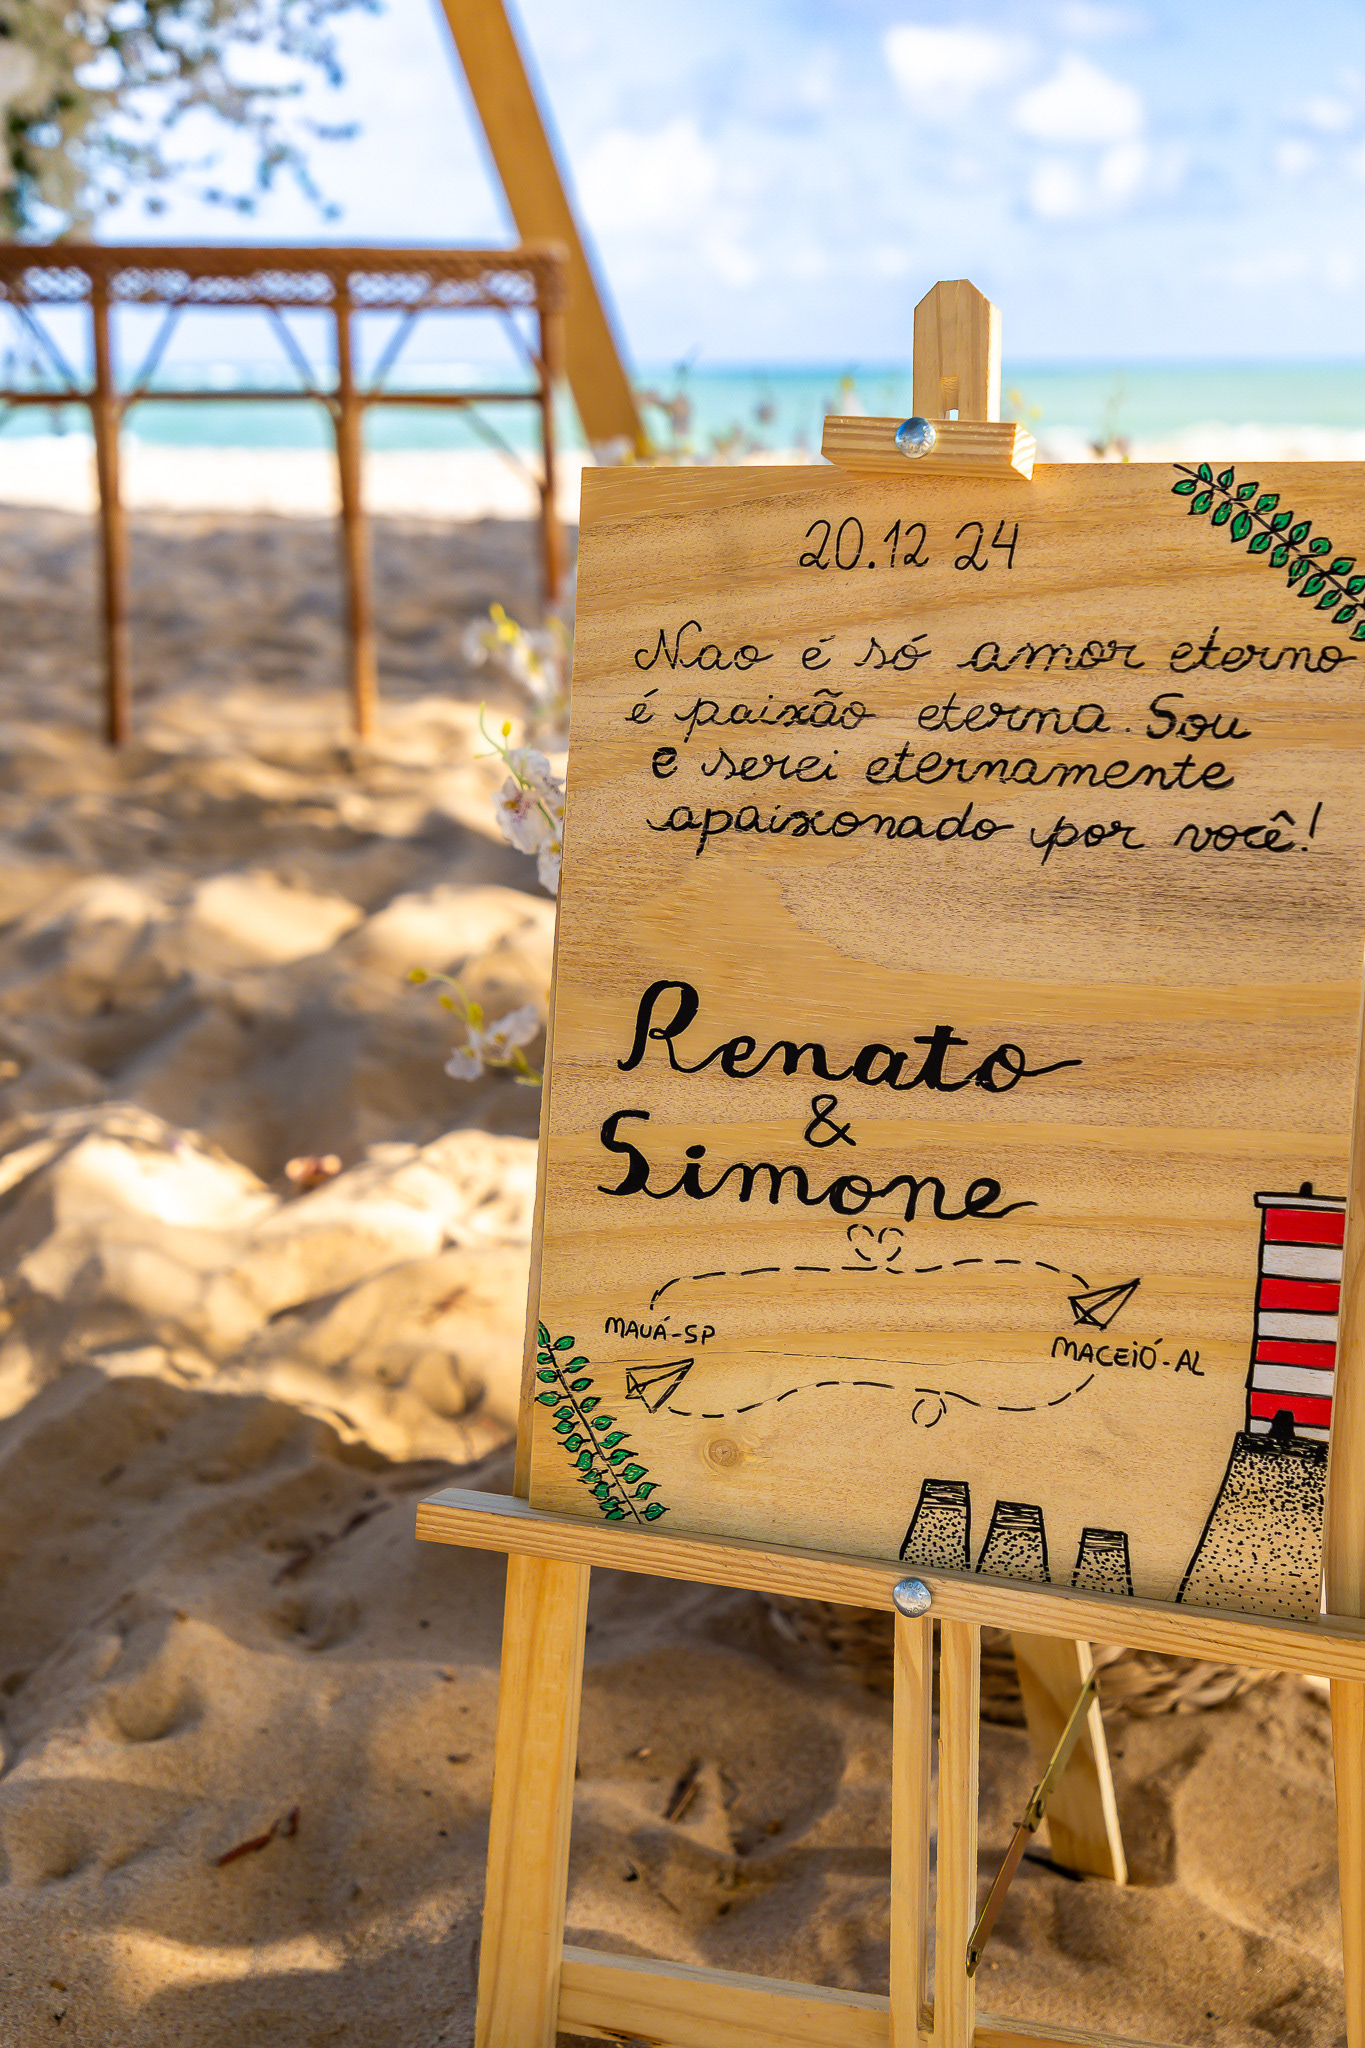 20.12 24
Nao é só amor eterno
é paixão eterna. Sou
e serei eternamente
apaixonado por você!
Renato
&
Simone
MAUÁ-SP
MACEIÓ-AL